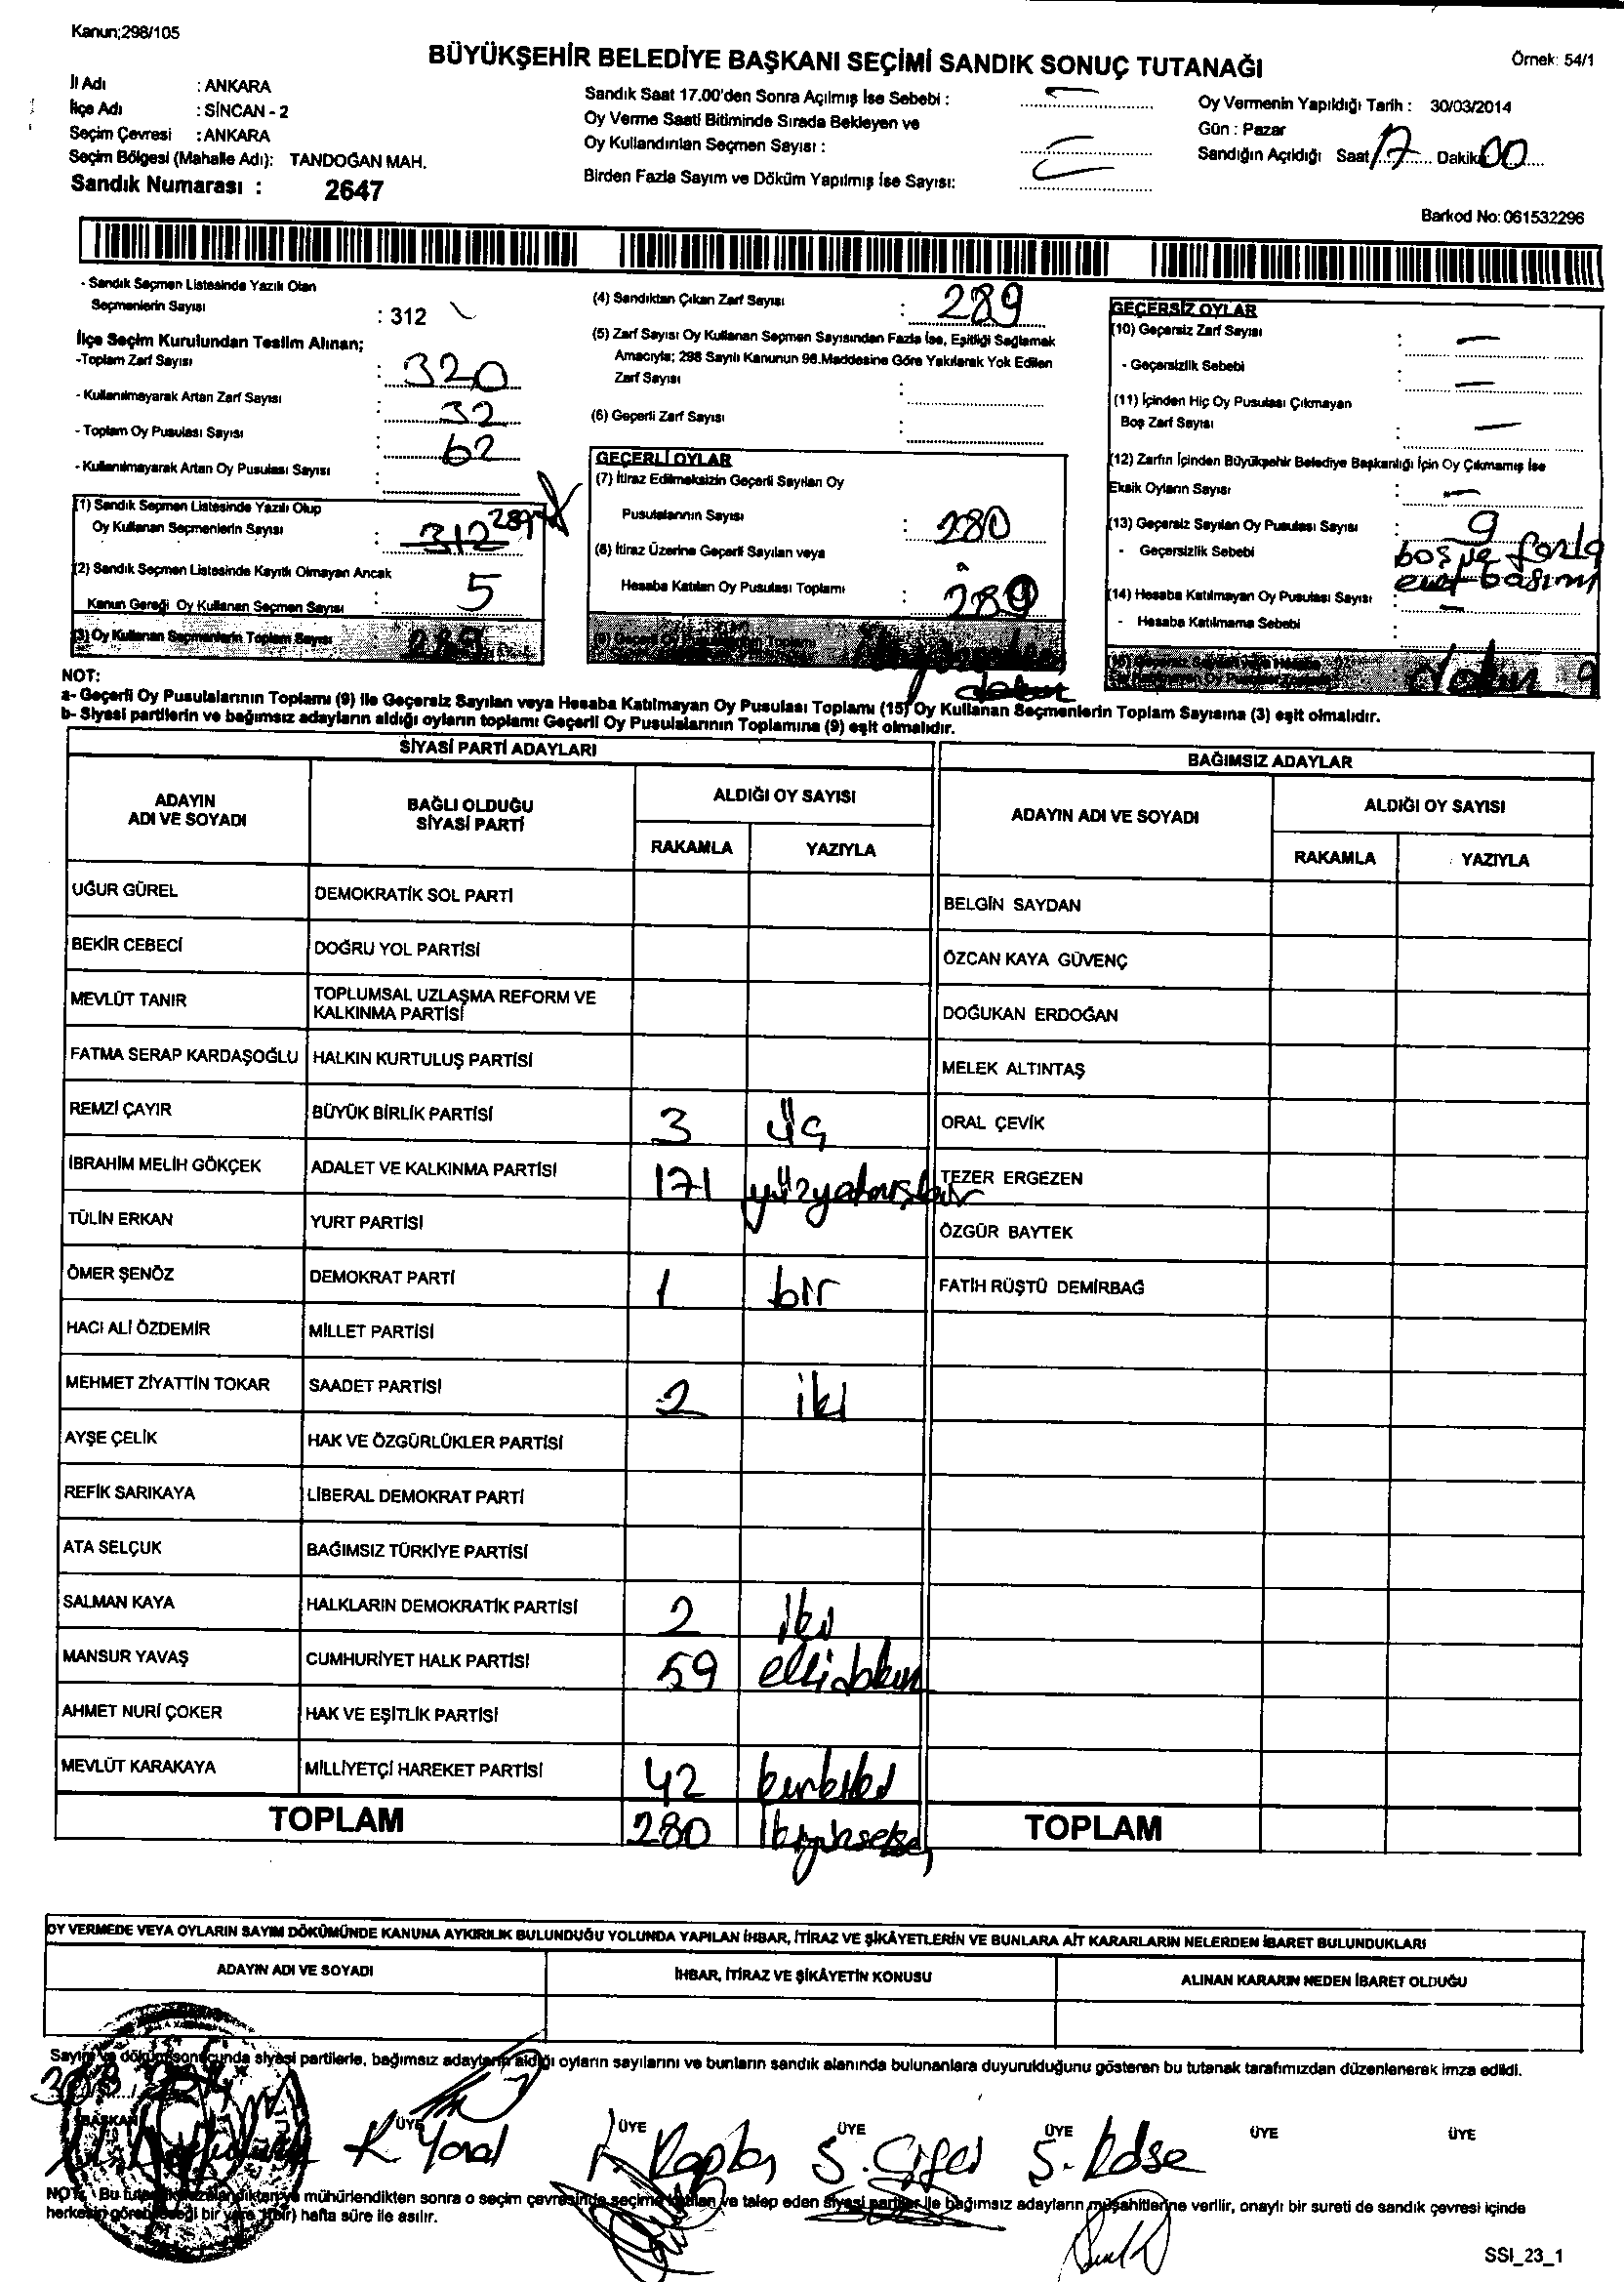 Kanun;298/105
BÜYÜKŞEHİR BELEDİYE BAŞKANI SEÇİMİ SANDIK SONUÇ TUTANAĞI
Örnek: 54/1
İl Adı : ANKARA
İlçe Adı : SİNCAN - 2
Seçim Çevresi : ANKARA
Seçim Bölgesi (Mahalle Adı): TANDOĞAN MAH.
Sandık Numarası : 2647
Sandık Saat 17.00'den Sonra Açılmış İse Sebebi :
Oy Verme Saati Bitiminde Sırada Bekleyen ve
Oy Kullandırılan Seçmen Sayısı :
Birden Fazla Sayım ve Döküm Yapılmış İse Sayısı:
Oy Vermenin Yapıldığı Tarih : 30/03/2014
Gün : Pazar
Sandığın Açıldığı Saat 17 Dakika 00
Barkod No: 061532296
- Sandık Seçmen Listesinde Yazılı Olan
Seçmenlerin Sayısı : 312
İlçe Seçim Kurulundan Teslim Alınan;
-Toplam Zarf Sayısı : 320
- Kullanılmayarak Artan Zarf Sayısı : 32
- Toplam Oy Pusulası Sayısı : 62
- Kullanılmayarak Artan Oy Pusulası Sayısı :
(1) Sandık Seçmen Listesinde Yazılı Olup
Oy Kullanan Seçmenlerin Sayısı : 312 289
(2) Sandık Seçmen Listesinde Kayıtlı Olmayan Ancak
Kanun Gereği Oy Kullanan Seçmen Sayısı : 5
(3) Oy Kullanan Seçmenlerin Toplam Sayısı : 289
(4) Sandıktan Çıkan Zarf Sayısı : 289
(5) Zarf Sayısı Oy Kullanan Seçmen Sayısından Fazla İse, Eşitliği Sağlamak
Amacıyla; 298 Sayılı Kanunun 98.Maddesine Göre Yakılarak Yok Edilen
Zarf Sayısı :
(6) Geçerli Zarf Sayısı :
GEÇERLİ OYLAR
(7) İtiraz Edilmeksizin Geçerli Sayılan Oy
Pusulalarının Sayısı : 280
(8) İtiraz Üzerine Geçerli Sayılan veya
Hesaba Katılan Oy Pusulası Toplamı : 289
(9) Geçerli Oy Pusulalarının Toplamı
GEÇERSİZ OYLAR
(10) Geçersiz Zarf Sayısı : —
- Geçersizlik Sebebi : —
(11) İçinden Hiç Oy Pusulası Çıkmayan
Boş Zarf Sayısı : —
(12) Zarfın İçinden Büyükşehir Belediye Başkanlığı İçin Oy Çıkmamış İse
Eksik Oyların Sayısı : —
(13) Geçersiz Sayılan Oy Pusulası Sayısı : 9
- Geçersizlik Sebebi : boş ve fazla
evet basımı
(14) Hesaba Katılmayan Oy Pusulası Sayısı : —
- Hesaba Katılmama Sebebi :
Dokuz 9
NOT:
a- Geçerli Oy Pusulalarının Toplamı (9) ile Geçersiz Sayılan veya Hesaba Katılmayan Oy Pusulası Toplamı (15) Oy Kullanan Seçmenlerin Toplam Sayısına (3) eşit olmalıdır.
b- Siyasi partilerin ve bağımsız adayların aldığı oyların toplamı Geçerli Oy Pusulalarının Toplamına (9) eşit olmalıdır.
SİYASİ PARTİ ADAYLARI
BAĞIMSIZ ADAYLAR
ADAYIN ADI VE SOYADI
BAĞLI OLDUĞU SİYASİ PARTİ
ALDIĞI OY SAYISI
RAKAMLA YAZIYLA
ADAYIN ADI VE SOYADI
ALDIĞI OY SAYISI
RAKAMLA YAZIYLA
UĞUR GÜREL DEMOKRATİK SOL PARTİ BELGİN SAYDAN
BEKİR CEBECİ DOĞRU YOL PARTİSİ ÖZCAN KAYA GÜVENÇ
MEVLÜT TANIR TOPLUMSAL UZLAŞMA REFORM VE KALKINMA PARTİSİ DOĞUKAN ERDOĞAN
FATMA SERAP KARDAŞOĞLU HALKIN KURTULUŞ PARTİSİ MELEK ALTINTAŞ
REMZİ ÇAYIR BÜYÜK BİRLİK PARTİSİ 3 üç ORAL ÇEVİK
İBRAHİM MELİH GÖKÇEK ADALET VE KALKINMA PARTİSİ 171 yüzyetmişbir TEZER ERGEZEN
TÜLİN ERKAN YURT PARTİSİ ÖZGÜR BAYTEK
ÖMER ŞENÖZ DEMOKRAT PARTİ 1 bir FATİH RÜŞTÜ DEMİRBAĞ
HACI ALİ ÖZDEMİR MİLLET PARTİSİ
MEHMET ZİYATTİN TOKAR SAADET PARTİSİ 2 iki
AYŞE ÇELİK HAK VE ÖZGÜRLÜKLER PARTİSİ
REFİK SARIKAYA LİBERAL DEMOKRAT PARTİ
ATA SELÇUK BAĞIMSIZ TÜRKİYE PARTİSİ
SALMAN KAYA HALKLARIN DEMOKRATİK PARTİSİ 2 iki
MANSUR YAVAŞ CUMHURİYET HALK PARTİSİ 59 ellidokuz
AHMET NURİ ÇOKER HAK VE EŞİTLİK PARTİSİ
MEVLÜT KARAKAYA MİLLİYETÇİ HAREKET PARTİSİ 42 kırkiki
TOPLAM 280 ikiyüzseksen TOPLAM
OY VERMEDE VEYA OYLARIN SAYIM DÖKÜMÜNDE KANUNA AYKIRILIK BULUNDUĞU YOLUNDA YAPILAN İHBAR, İTİRAZ VE ŞİKÂYETLERİN VE BUNLARA AİT KARARLARIN NELERDEN İBARET BULUNDUKLARI
ADAYIN ADI VE SOYADI İHBAR, İTİRAZ VE ŞİKÂYETİN KONUSU ALINAN KARARIN NEDEN İBARET OLDUĞU
Sayım ve döküm sonucunda siyasi partilerle, bağımsız adayların aldığı oyların sayılarını ve bunların sandık alanında bulunanlara duyurulduğunu gösteren bu tutanak tarafımızdan düzenlenerek imza edildi.
BAŞKAN ÜYE ÜYE ÜYE ÜYE ÜYE ÜYE
K. Yoral S. Çiftçi S. Köse
NOT: Bu tutanak imzalandıktan ve mühürlendikten sonra o seçim çevresinde seçime katılan ve talep eden siyasi partiler ile bağımsız adayların müşahitlerine verilir, onaylı bir sureti de sandık çevresi içinde
herkesin görebileceği bir yere 1(bir) hafta süre ile asılır.
SSI_23_1